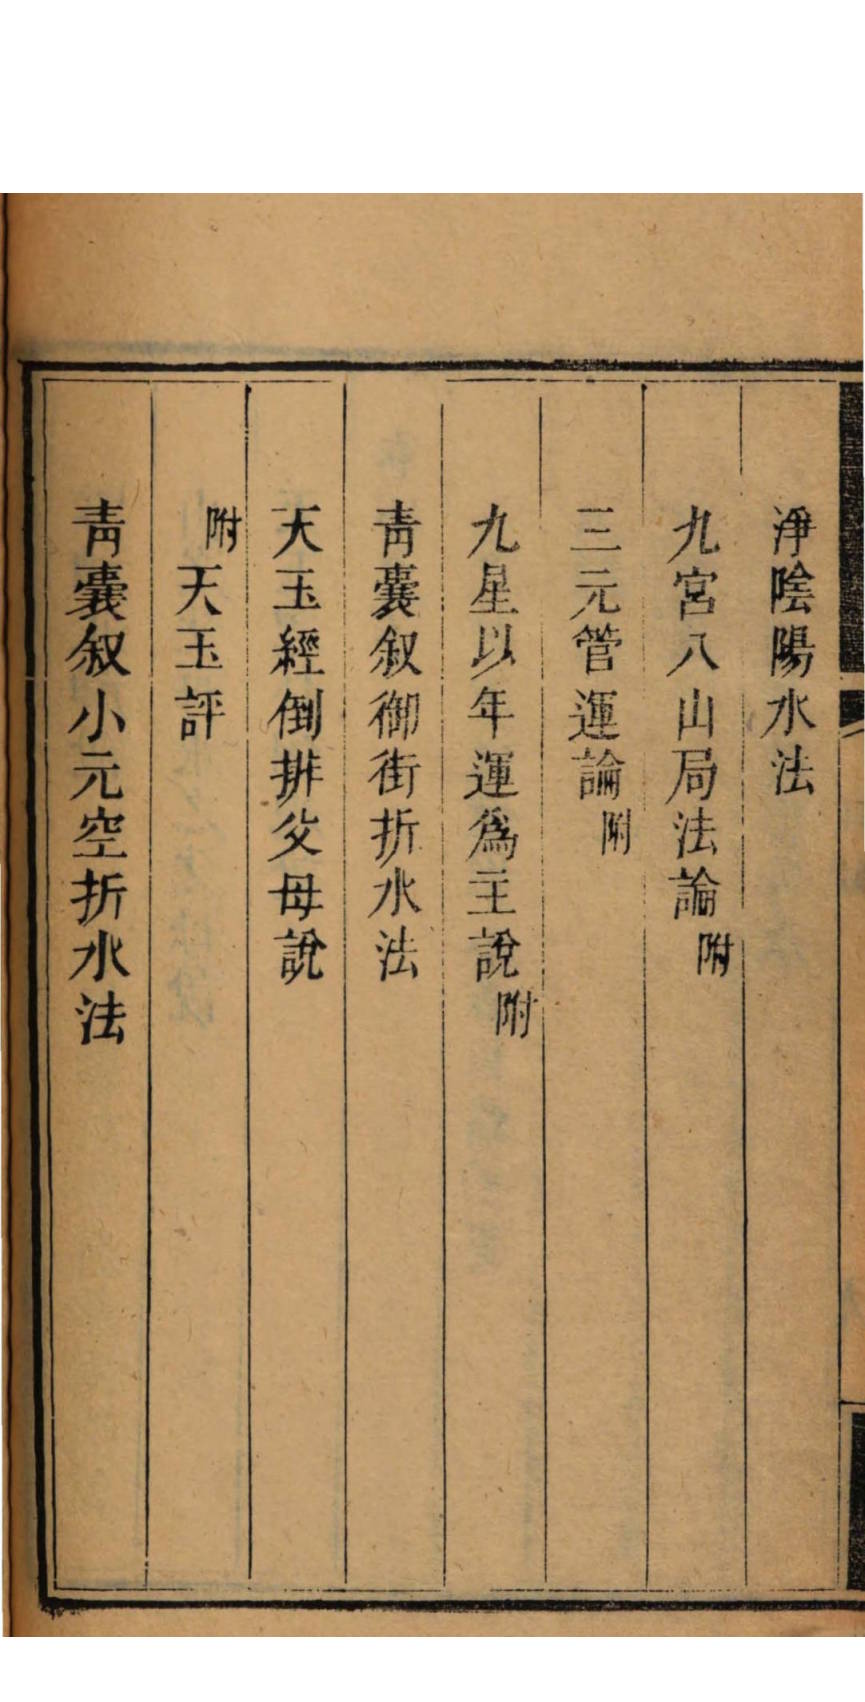 淨陰陽水法
九宮八山局法論附
三元管運論附
九星以年運爲主說附
青囊叙御街折水法
天玉經倒排父母說
附天玉評
青囊叙小元空折水法